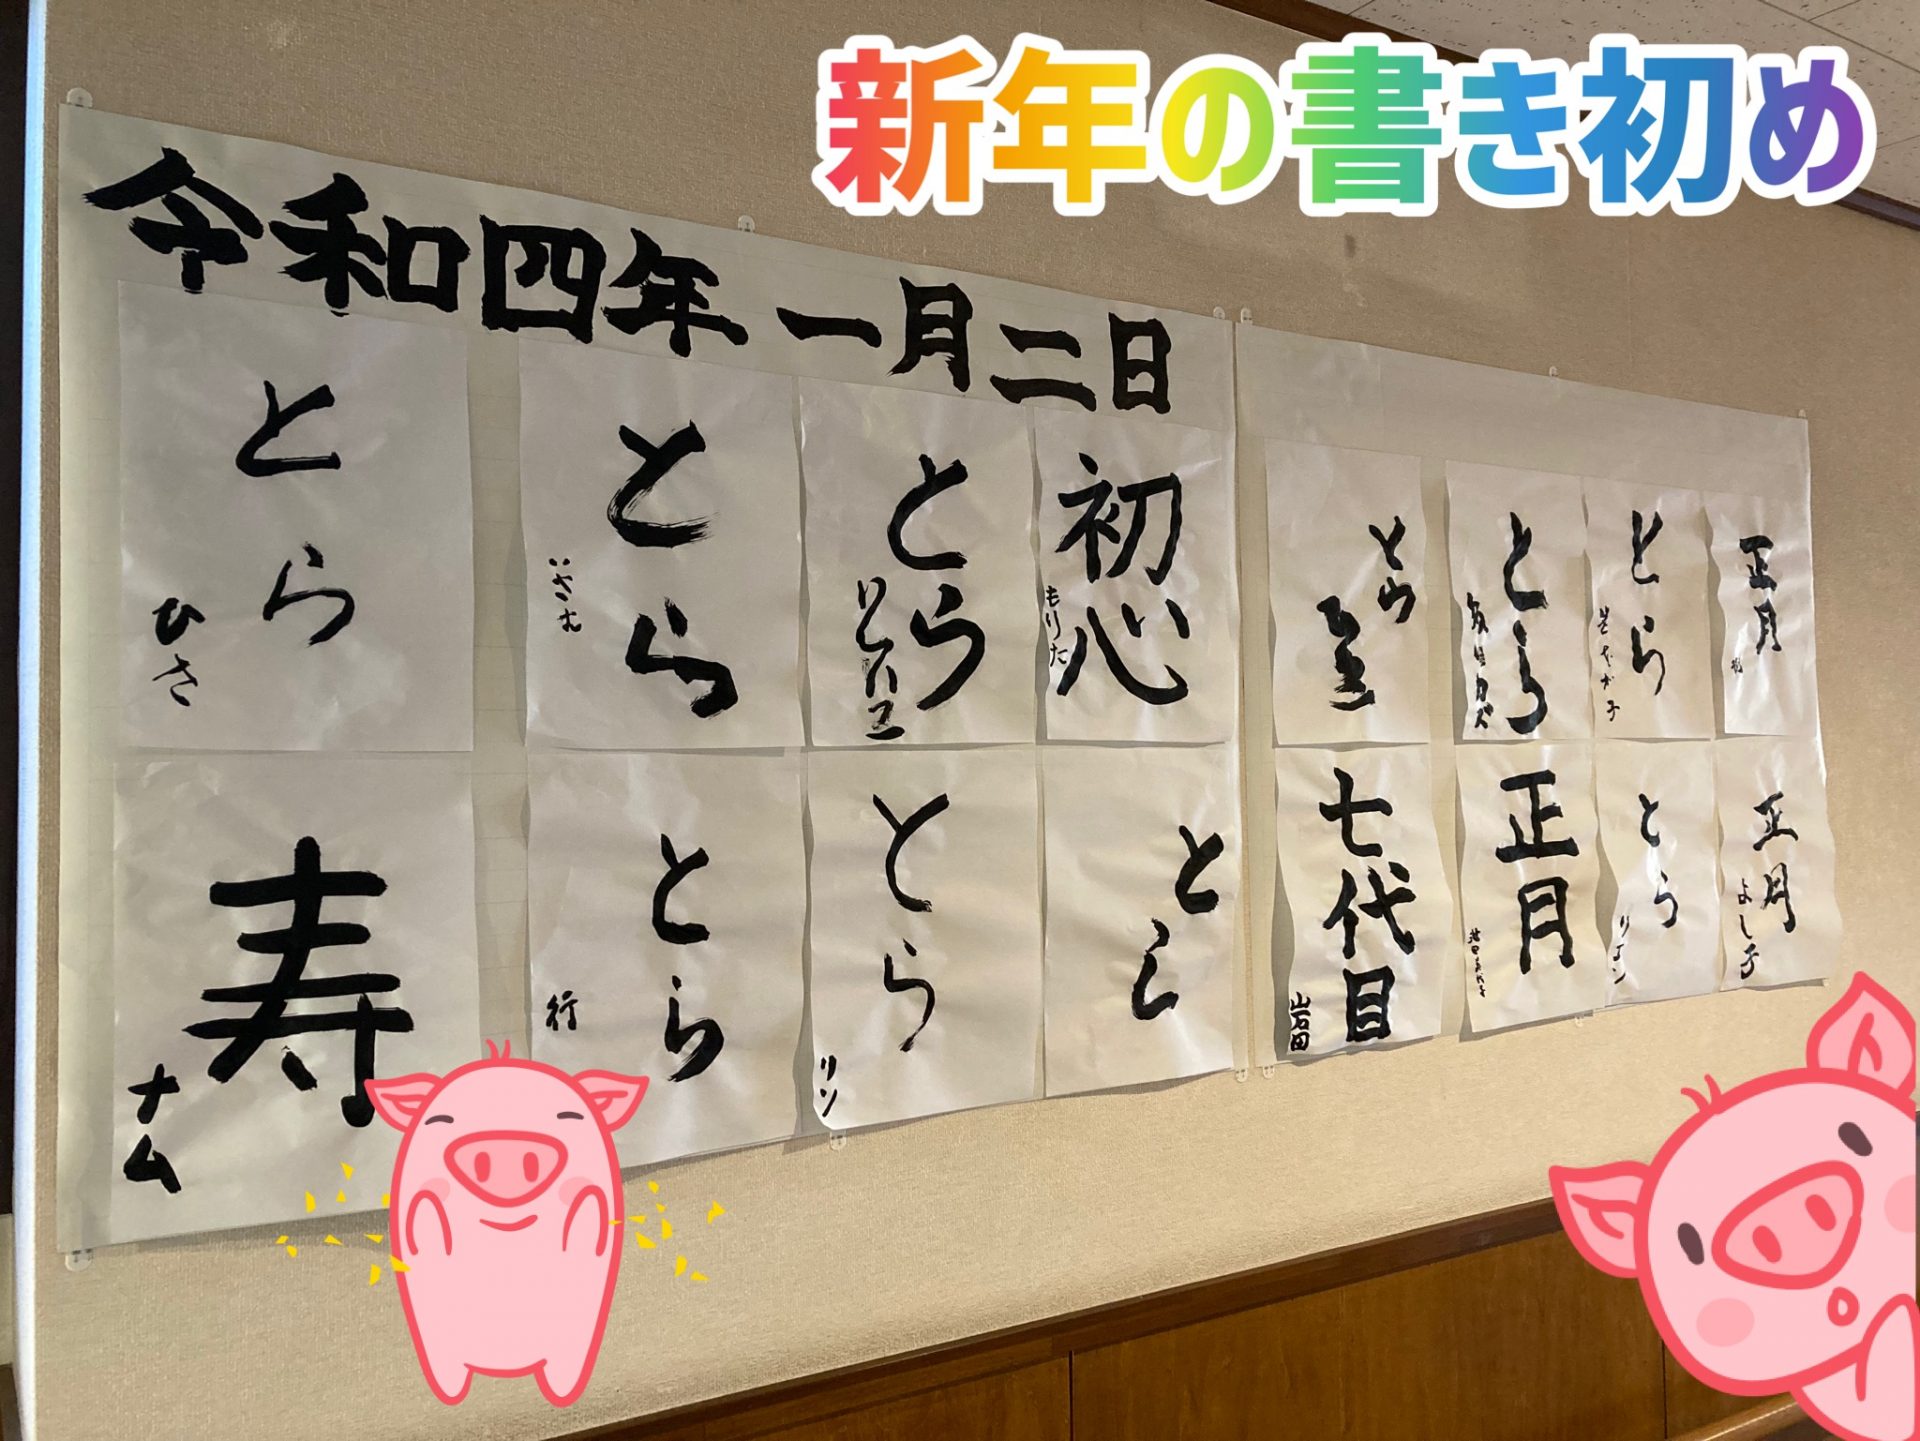 新年の書き初め
令和四年 一月二日
とら
ひさ
とら
いさむ
とら
初心
もりた
とら
とら
とら
正月
寿
ナム
とら
行
とら
リン
とら
七代目
岩田
正月
とら
正月
よし子